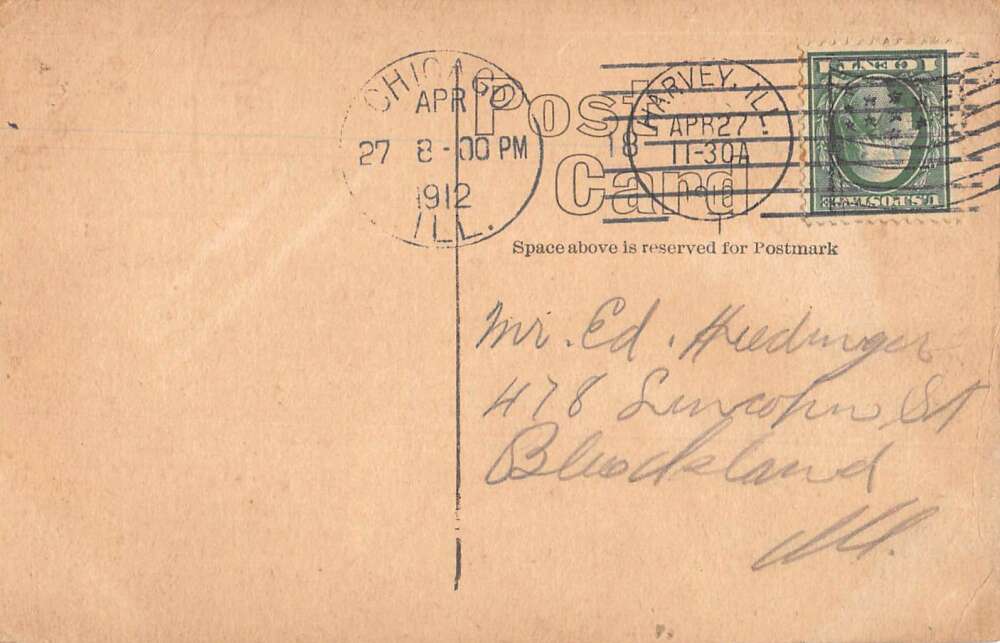 CHICAGO
APR
27 8-00 PM
1912
ILL.
Post
Card
HARVEY, ILL.
APR 27
11-30A
18
ONE CENT 1
U.S. POSTAGE
Space above is reserved for Postmark
Mr. Ed.
478 Lincoln St
Ill.